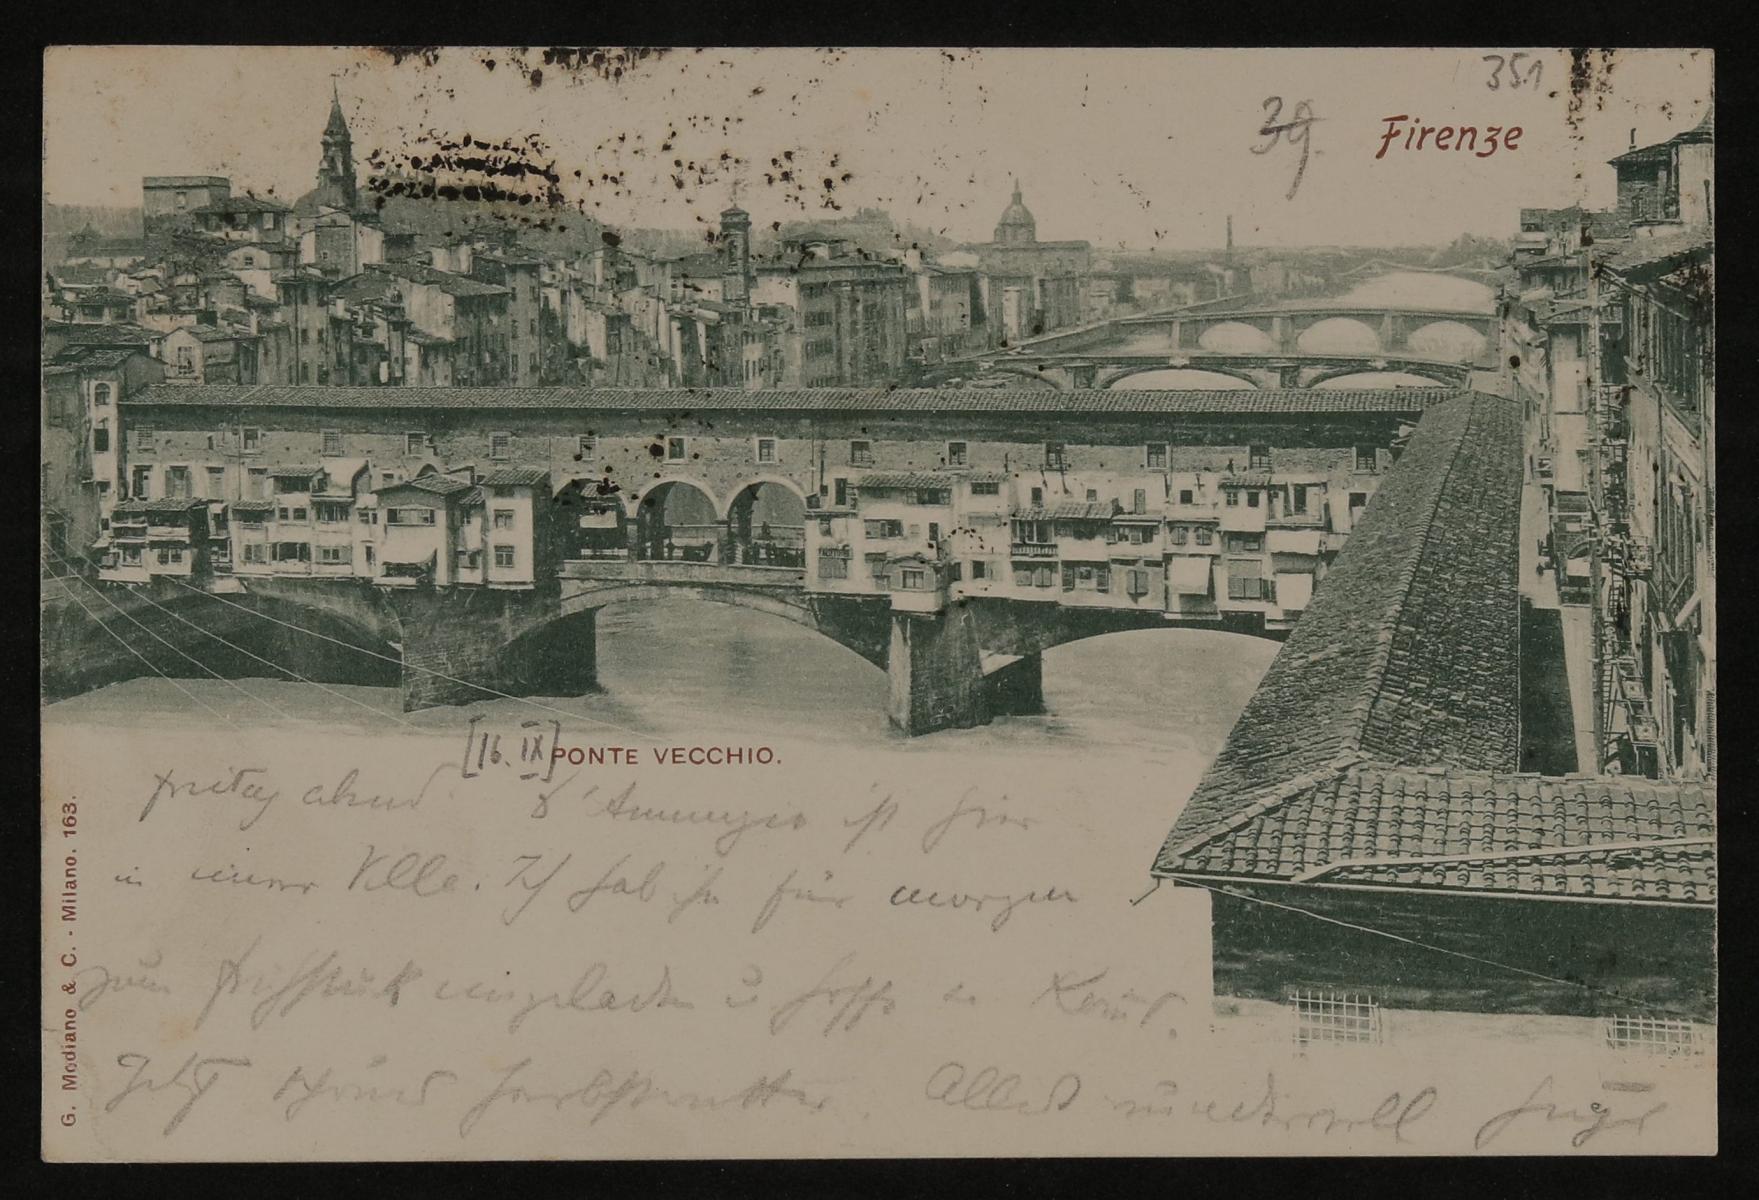 351
39.
Firenze
[16. IX]
PONTE VECCHIO.
freitag abend. d'Annunzio ist hier
in einer Villa. Ich hab ihn für morgen
zum Frühstück eingeladen u hoffe er kommt.
Jetzt schönes Herbstwetter. Alles wundervoll
Hugo
G. Modiano & C. - Milano. 163.